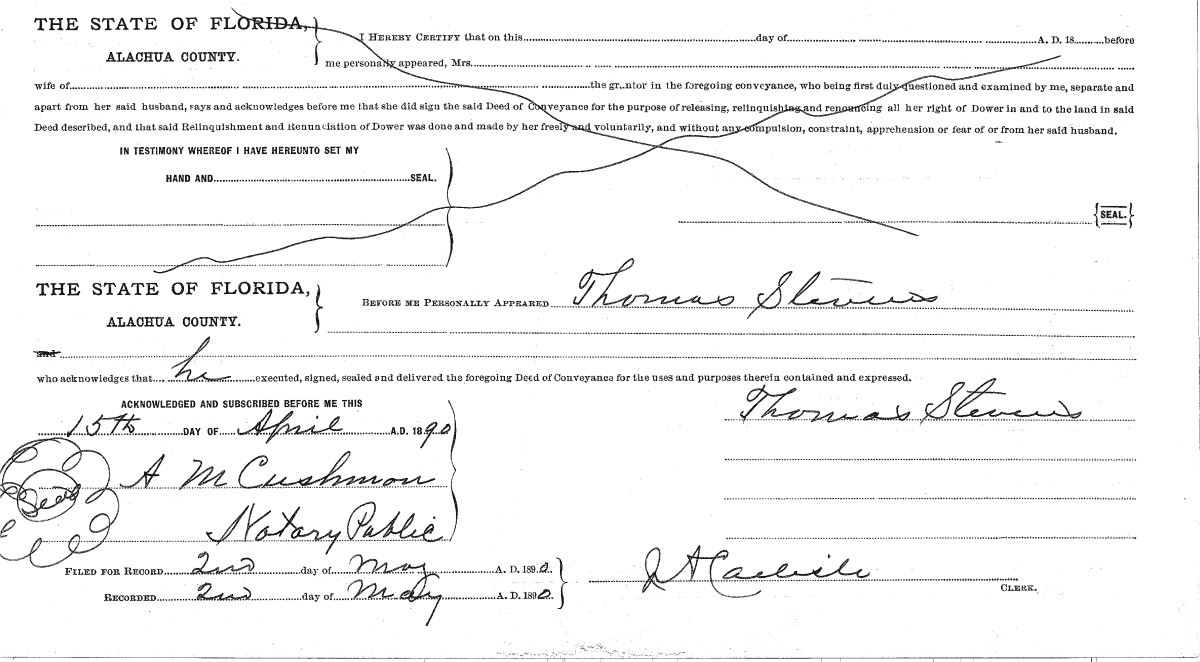 THE STATE OF FLORIDA,
ALACHUA COUNTY.
I HEREBY CERTIFY that on this day of A. D. 18 before
me personally appeared, Mrs.
wife of the gr..ntor in the foregoing conveyance, who being first duly questioned and examined by me, separate and
apart from her said husband, says and acknowledges before me that she did sign the said Deed of Conveyance for the purpose of releasing, relinquishing and renouncing all her right of Dower in and to the land in said
Deed described, and that said Relinquishment and Renunciation of Dower was done and made by her freely and voluntarily, and without any compulsion, constraint, apprehension or fear of or from her said husband.
IN TESTIMONY WHEREOF I HAVE HEREUNTO SET MY
HAND AND SEAL.
SEAL.
THE STATE OF FLORIDA,
ALACHUA COUNTY.
BEFORE ME PERSONALLY APPEARED Thomas Stevens
and
who acknowledges that he executed, signed, sealed and delivered the foregoing Deed of Conveyance for the uses and purposes therein contained and expressed.
ACKNOWLEDGED AND SUBSCRIBED BEFORE ME THIS
Thomas Stevens
15th DAY OF April A.D. 1890
A M Cushmon
Seal
Notary Public
FILED FOR RECORD 2nd day of May A. D. 1890.
J A Carlisle
CLERK.
RECORDED 2nd day of May A. D. 1890.